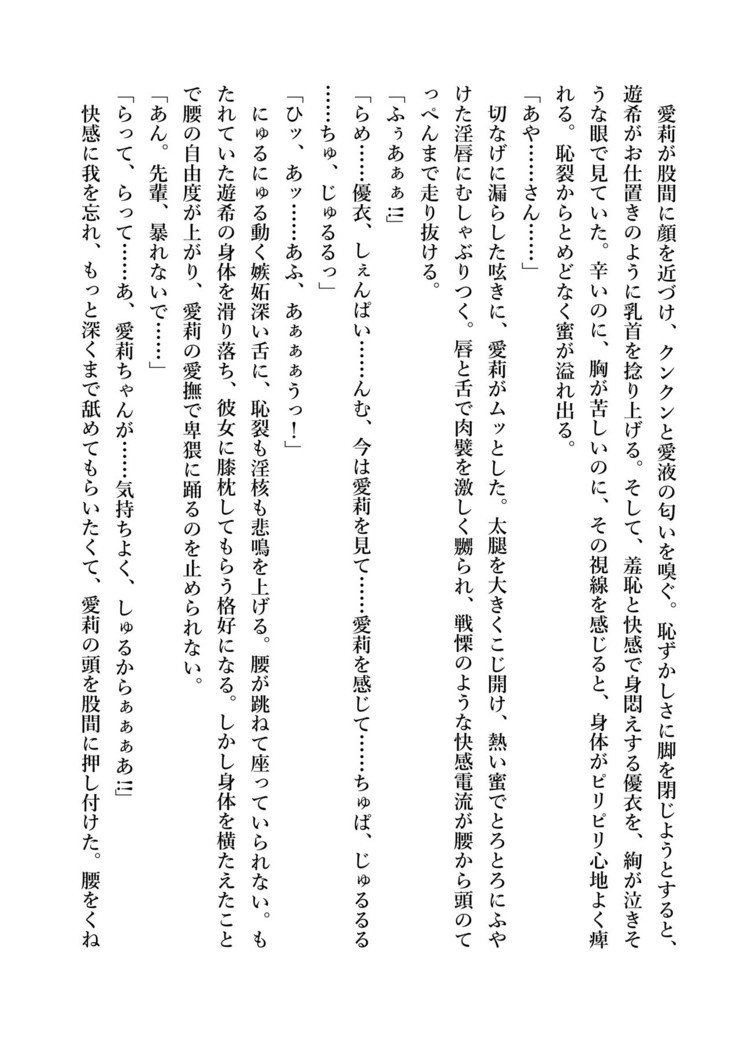 愛莉が股間に顔を近づけ、クンクンと愛液の匂いを嗅ぐ。恥ずかしさに脚を閉じようとすると、
遊希がお仕置きのように乳首を捻り上げる。そして、羞恥と快感で身悶えする優衣を、絢が泣きそ
うな眼で見ていた。辛いのに、胸が苦しいのに、その視線を感じると、身体がピリピリ心地よく痺
れる。恥裂からとめどなく蜜が溢れ出る。
「あや……さん……」
切なげに漏らした呟きに、愛莉がムッとした。太腿を大きくこじ開け、熱い蜜でとろとろにふや
けた淫唇にむしゃぶりつく。唇と舌で肉襞を激しく嬲られ、戦慄のような快感電流が腰から頭のて
っぺんまで走り抜ける。
「ふぅあぁぁ!!」
「らめ……優衣、しぇんぱい……んむ、今は愛莉を見て……愛莉を感じて……ちゅぱ、じゅるるる
……ちゅ、じゅるるっ」
「ひッ、あッ……あふ、あぁぁぁうっ！」
にゅるにゅる動く嫉妬深い舌に、恥裂も淫核も悲鳴を上げる。腰が跳ねて座っていられない。も
たれていた遊希の身体を滑り落ち、彼女に膝枕してもらう格好になる。しかし身体を横たえたこと
で腰の自由度が上がり、愛莉の愛撫で卑猥に踊るのを止められない。
「あん。先輩、暴れないで……」
「らって、らって……あ、愛莉ちゃんが……気持ちよく、しゅるからぁぁぁあ!!」
快感に我を忘れ、もっと深くまで舐めてもらいたくて、愛莉の頭を股間に押し付けた。腰をくね